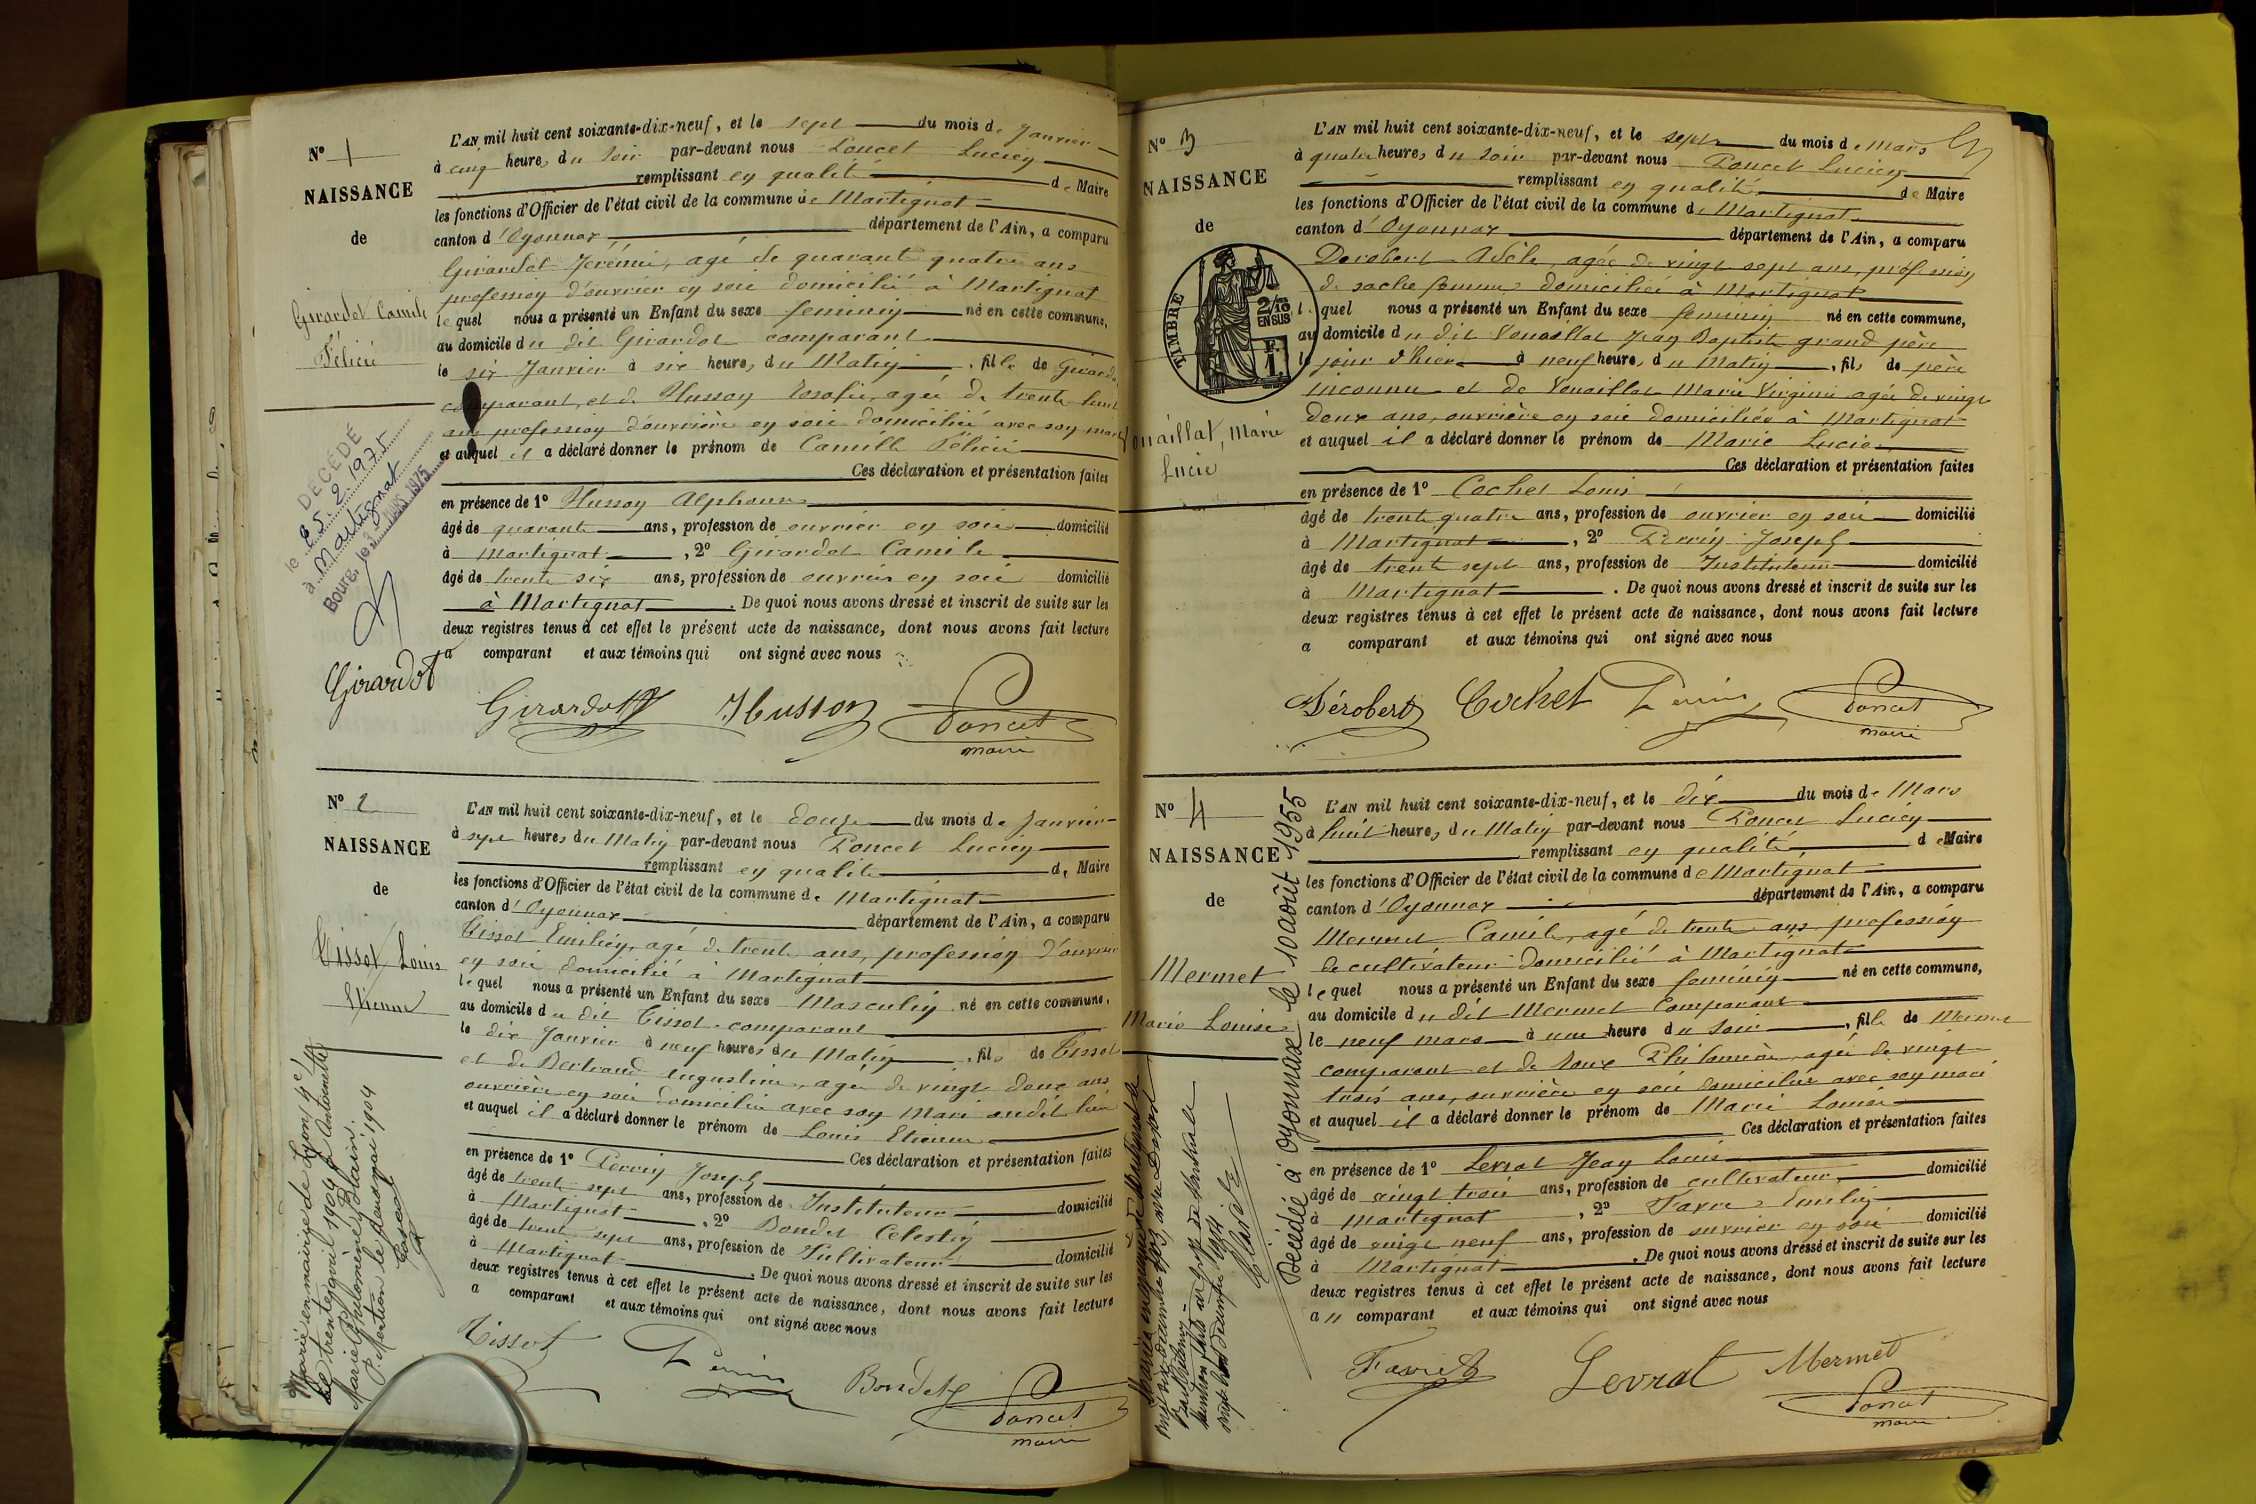 N° 1
NAISSANCE
de
Girardot Camile
Félicie
DÉCÉDÉ
le 25.2.1975
à Martignat
Bourg, le 3 MARS 1975
L'AN mil huit cent soixante-dix-neuf, et le sept du mois de Janvier
à cinq heures du Soir par-devant nous Poncet Lucien
remplissant en qualité de Maire
les fonctions d'Officier de l'état civil de la commune de Martignat
canton d'Oyonnax département de l'Ain, a comparu
Girardot Jérémie, agé de quarant quatre ans
profession d'ouvrier en soie domicilié à Martignat
lequel nous a présenté un Enfant du sexe feminin né en cette commune,
au domicile du dit Girardot comparant
le six Janvier à six heures du Matin, fille de Girardot
comparant, et de Husson, agée de trente huit
ans profession d'ouvrière en soie domicilié avec son mari
et auquel il a déclaré donner le prénom de Camille Félicie
Ces déclaration et présentation faites
en présence de 1° Husson Alphonse
âgé de quarante ans, profession de ouvrier en soie domicilié
à Martignat, 2° Girardot Camile
âgé de trente six ans, profession de ouvrier en soie domicilié
à Martignat. De quoi nous avons dressé et inscrit de suite sur les
deux registres tenus à cet effet le présent acte de naissance, dont nous avons fait lecture
a comparant et aux témoins qui ont signé avec nous
Girardot
Girardot Husson Poncet
maire
N° 2
NAISSANCE
de
Tissot Louis
Etienne
Marié en mairie de Lyon (4e)
le trente avril 1904 à
Marie Philomène Blain.
P. Mention le deux mai 1904
L'AN mil huit cent soixante-dix-neuf, et le douze du mois de Janvier
à sept heures du Matin par-devant nous Poncet Lucien
remplissant en qualité de Maire
les fonctions d'Officier de l'état civil de la commune de Martignat
canton d'Oyonnax département de l'Ain, a comparu
Tissot Emilien, agé de trente ans, profession d'ouvrier
en soie domicilié à Martignat
lequel nous a présenté un Enfant du sexe Masculin né en cette commune,
au domicile du dit Tissot comparant
le dix Janvier à neuf heures du Matin, fils de Tissot
et de Bertrand Augustine, agée de vingt deux ans
ouvrière en soie domicilié avec son Mari audit lieu
et auquel il a déclaré donner le prénom de Louis Etienne
Ces déclaration et présentation faites
en présence de 1° Perrin Joseph
âgé de trente sept ans, profession de Instituteur domicilié
à Martignat, 2° Bondet Célestin
âgé de trente sept ans, profession de Cultivateur domicilié
à Martignat. De quoi nous avons dressé et inscrit de suite sur les
deux registres tenus à cet effet le présent acte de naissance, dont nous avons fait lecture
a comparant et aux témoins qui ont signé avec nous
Tissot Perrin Bondet Poncet
maire
N° 3
NAISSANCE
de
TIMBRE
2/10 EN SUS
F. 1.
Vouaillat, Marie
Lucie
L'AN mil huit cent soixante-dix-neuf, et le sept du mois de Mars
à quatre heures du Soir par-devant nous Poncet Lucien
remplissant en qualité de Maire
les fonctions d'Officier de l'état civil de la commune de Martignat
canton d'Oyonnax département de l'Ain, a comparu
Derobert Adèle, agée de vingt sept ans, profession
de sache femme domiciliée à Martignat
lequel nous a présenté un Enfant du sexe feminin né en cette commune,
au domicile du dit Vouaillat Jean Baptiste grand père
le jour d'hier à neuf heures du Matin, fils de père
inconnu et de Vouaillat Marie Virginie agée de vingt
deux ans, ouvrière en soie domiciliée à Martignat
et auquel il a déclaré donner le prénom de Marie Lucie
Ces déclaration et présentation faites
en présence de 1° Cochet Louis
âgé de trente quatre ans, profession de ouvrier en soie domicilié
à Martignat, 2° Perrin Joseph
âgé de trente sept ans, profession de Instituteur domicilié
à Martignat. De quoi nous avons dressé et inscrit de suite sur les
deux registres tenus à cet effet le présent acte de naissance, dont nous avons fait lecture
a comparant et aux témoins qui ont signé avec nous
Dérobert Cochet Perrin Poncet
maire
N° 4
NAISSANCE
de
Mermet
Marie Louise
Décédée à Oyonnax le 10 août 1955
L'AN mil huit cent soixante-dix-neuf, et le dix du mois de Mars
à huit heures du Matin par-devant nous Poncet Lucien
remplissant en qualité de Maire
les fonctions d'Officier de l'état civil de la commune de Martignat
canton d'Oyonnax département de l'Ain, a comparu
Mermet Camile, agé de trente ans profession
de cultivateur domicilié à Martignat
lequel nous a présenté un Enfant du sexe féminin né en cette commune,
au domicile du dit Mermet Comparant
le neuf mars à une heure du Soir, fille de Mermet
comparant et de Philomène, agée de vingt
trois ans, ouvrière en soie domiciliée avec son mari
et auquel il a déclaré donner le prénom de Marie Louise
Ces déclaration et présentation faites
en présence de 1° Levrat Jean Louis
âgé de vingt trois ans, profession de cultivateur domicilié
à Martignat, 2° Favre Emilien
âgé de vingt neuf ans, profession de ouvrier en soie domicilié
à Martignat. De quoi nous avons dressé et inscrit de suite sur les
deux registres tenus à cet effet le présent acte de naissance, dont nous avons fait lecture
au comparant et aux témoins qui ont signé avec nous
Favre Levrat Mermet
Poncet
maire